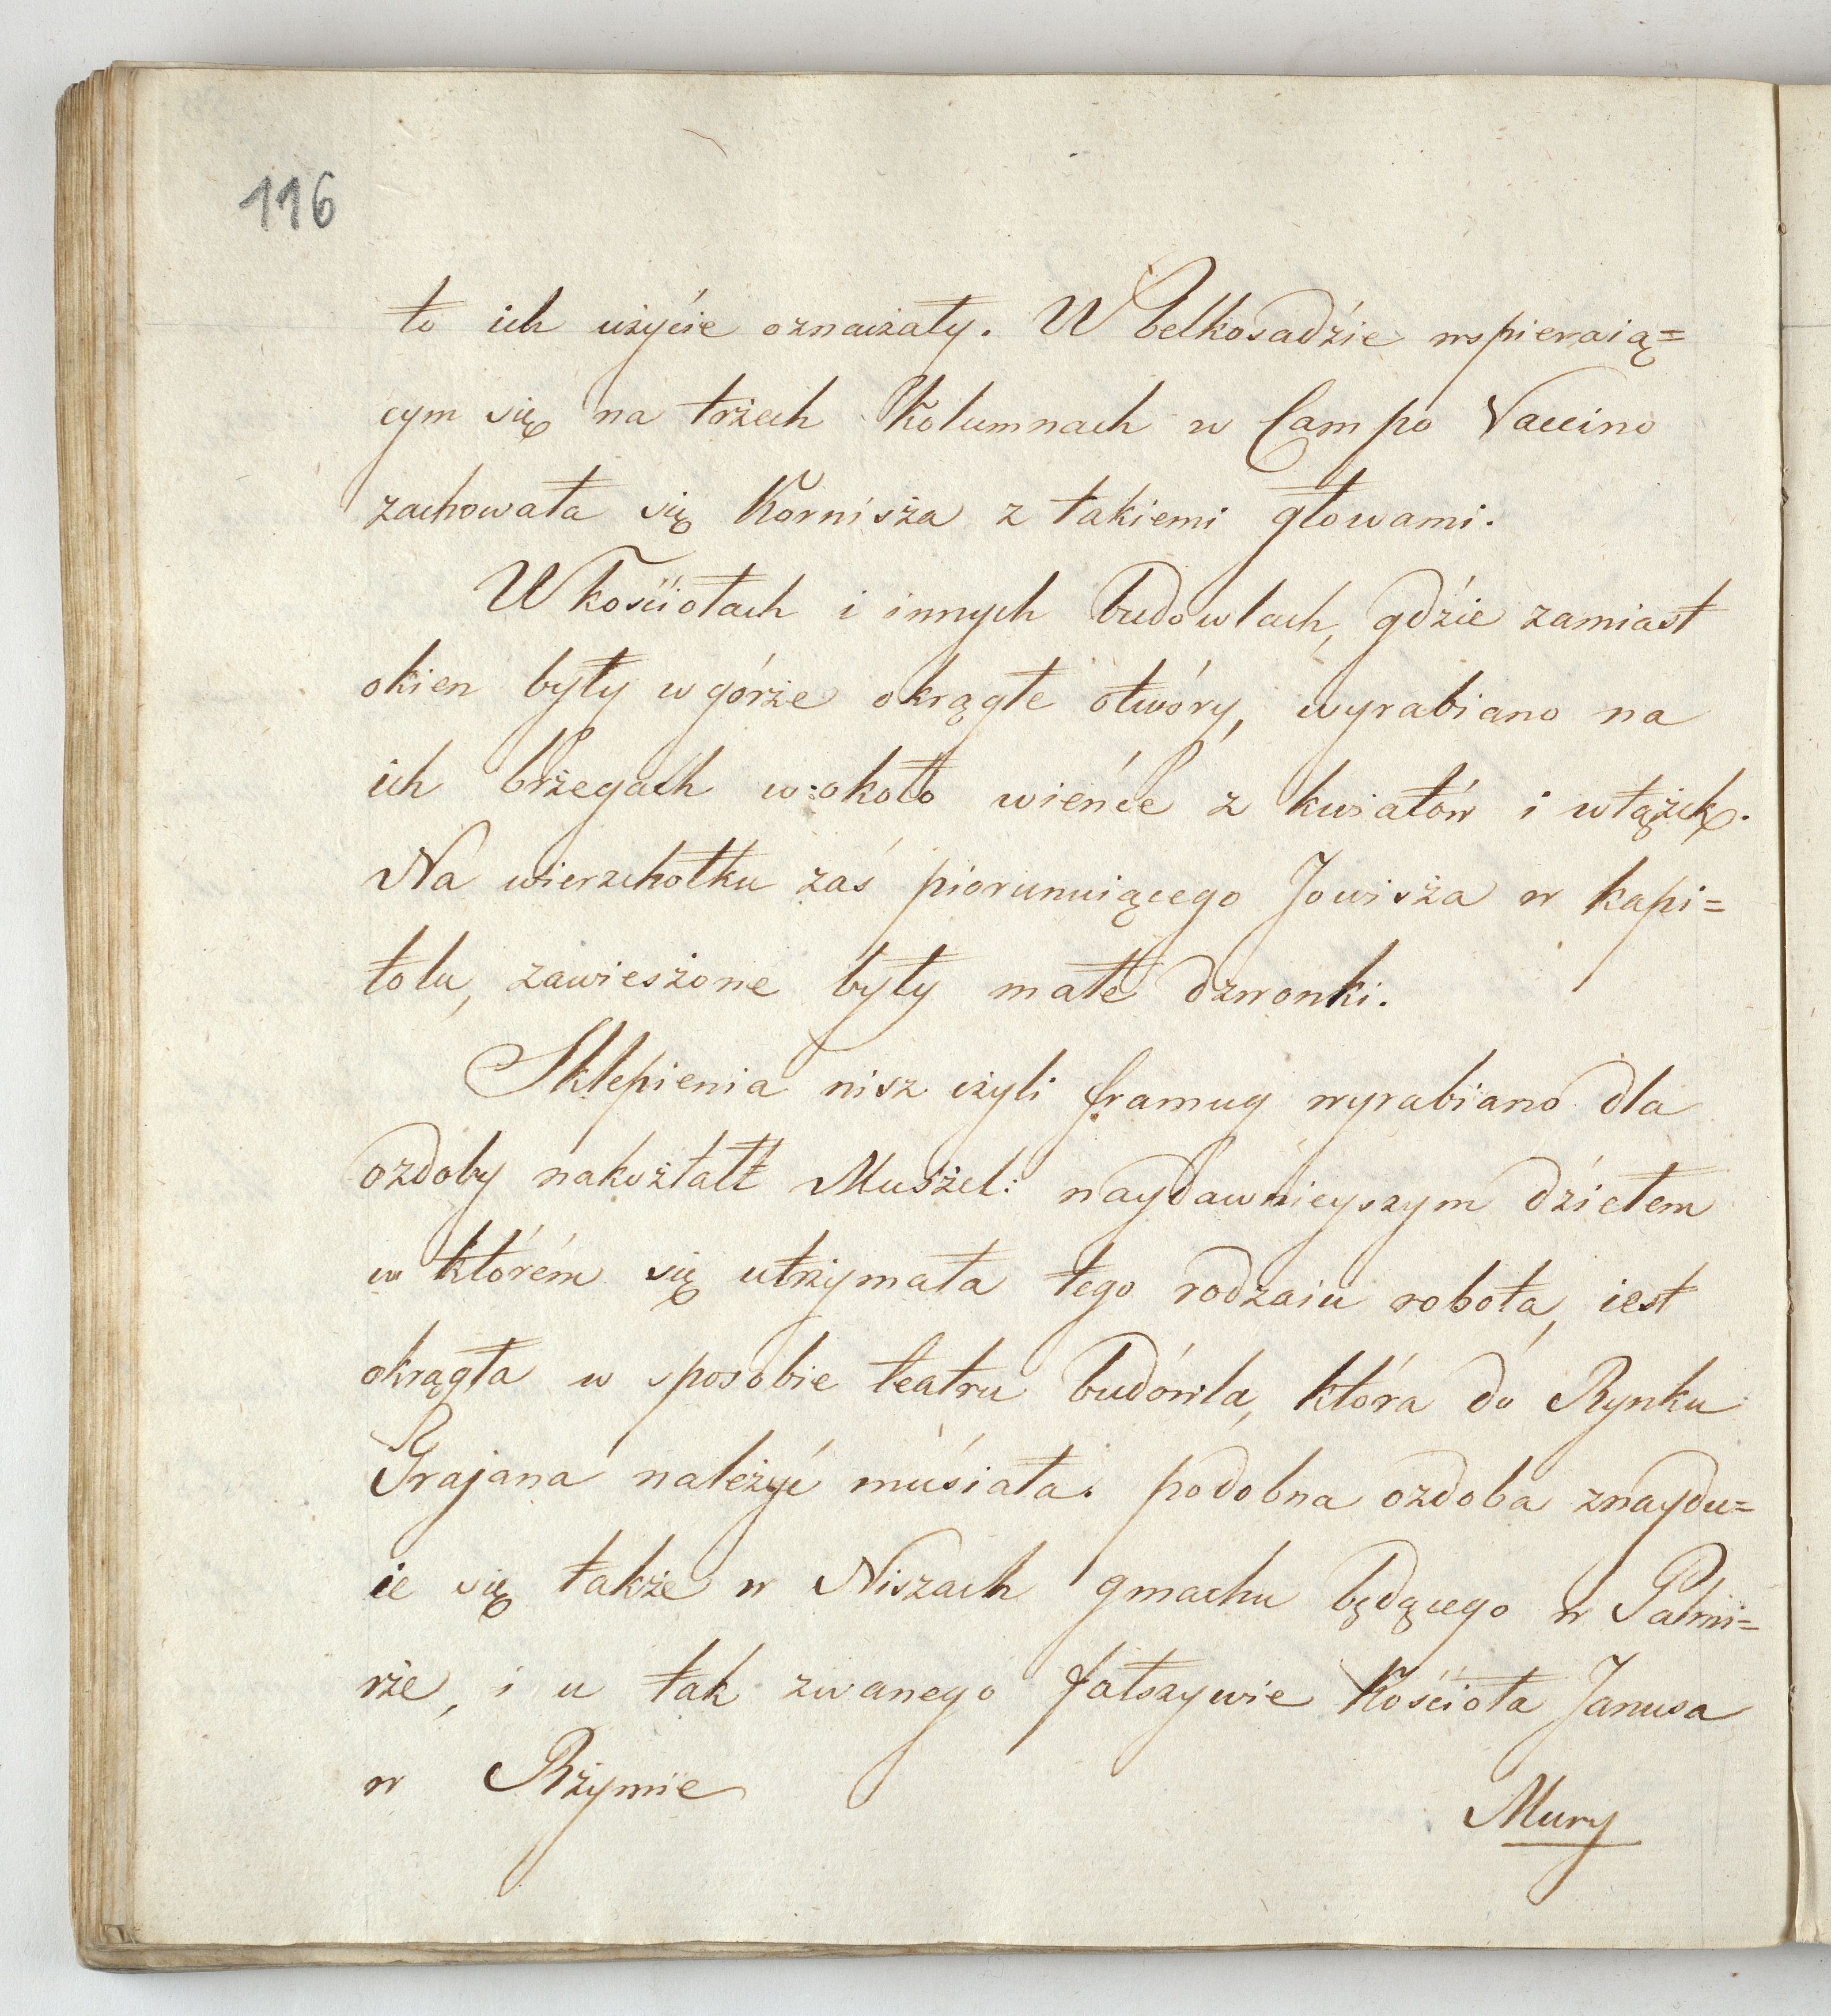 116
to ich użycie oznaczały. W belkosadzie wspieraią=
cym się na trzech Kolumnach w Campo Vaccino
zachowała się Kornisza z takiemi głowami.
W kościołach i innych budowlach, gdzie zamiast
okien były w górze okrągłe otwóry, wyrabiano na
ich brzegach w około wieńce z kwiatów i wstążek.
Na wierzchołku zaś piorunuiącego Jowisza w kapi=
tolu, zawieszone były małe dzwonki.
Sklepienia nisz czyli framug wyrabiano dla
ozdoby nakształt Muszel: naydawnieyszym dziełem
w którém się utrzymała tego rodzaiu robota, iest
okrągła w sposobie teatru budówla, która do Rynku
Trajana należyć musiała. podobna ozdoba znaydu=
ie się także w Niszach gmachu będącego w Palmi=
rze, i u tak zwanego fałszywie Kościoła Janusa
w Rzymie
Mury